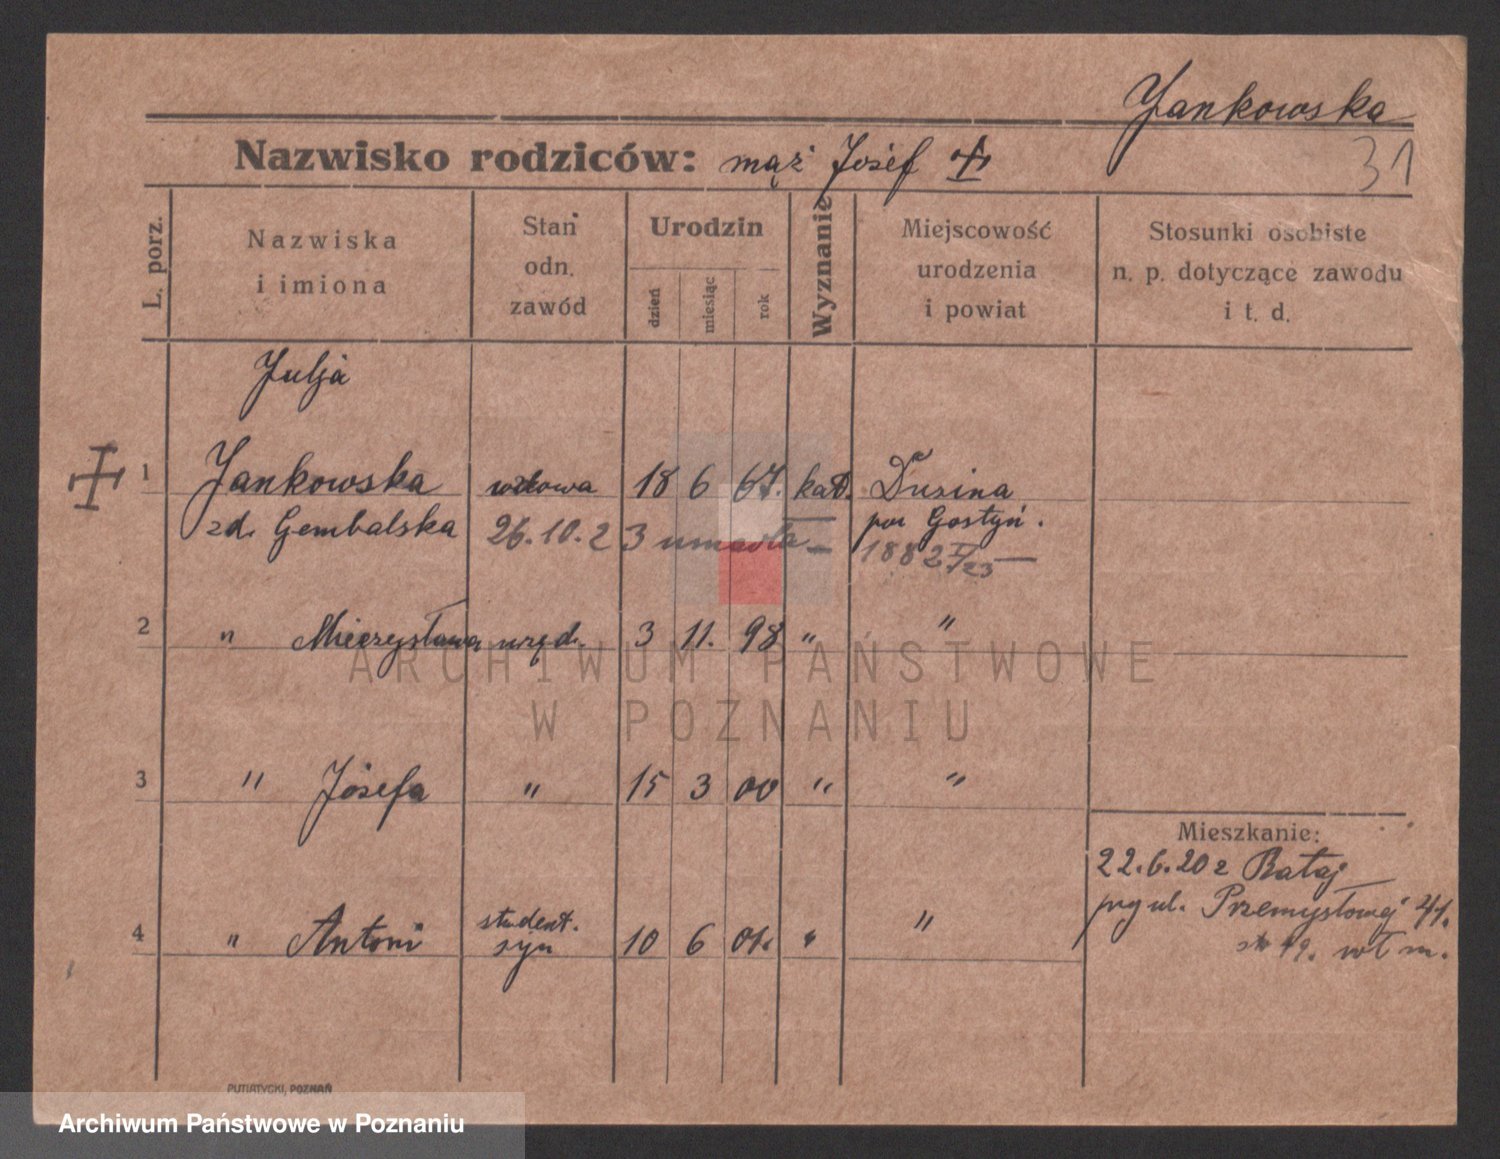 Jankowska
31
Nazwisko rodziców: mąż Józef
L. porz.
Nazwiska i imiona
Stan odn. zawód
Urodzin
dzień
miesiąc
rok
Wyznanie
Miejscowość urodzenia i powiat
Stosunki osobiste n. p. dotyczące zawodu i t. d.
Julja
1 Jankowska wdowa 18 6 67. kat. Dusina
zd. Gembalska 26.10.23 umarła pow Gostyń.
1882 I/23
2 " Mieczysława urzęd. 3 11. 98 " "
3 " Józefa " 15 3 00 " "
Mieszkanie:
22.6.20 z Bataj
przy ul. Przemysłowej 41.
4 " Antoni student. syn 10 6 01. " "
19. wł m.
PUTIATYCKI, POZNAŃ
ARCHIWUM PAŃSTWOWE
W POZNANIU
Archiwum Państwowe w Poznaniu